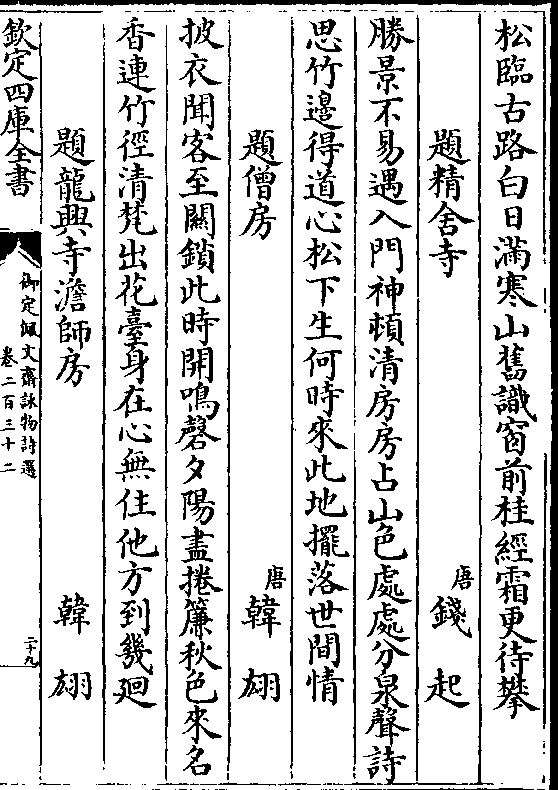 松臨古路白日滿寒山舊識窗前桂經霜更待攀
題精舍寺 唐 錢起
勝景不易遇入門神頓清房房占山色處處分泉聲詩
思竹邊得道心松下生何時來此地擺落世間情
題僧房 唐 韓翃
披衣聞客至關鎖此時開鳴磬夕陽盡捲簾秋色來名
香連竹徑清梵出花臺身在心無住他方到幾廻
題龍興寺澹師房 韓翃
欽定四庫全書
御定佩文齋詠物詩選
卷二百三十二
二十九